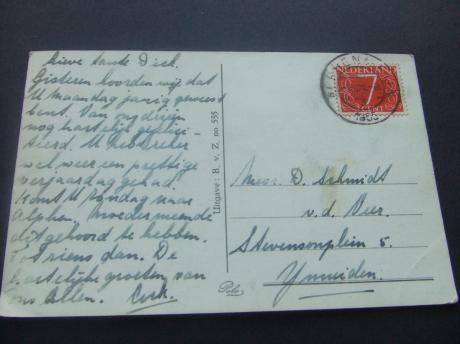 Lieve tante Dick.
Gisteren hoorden wij dat
U Maandag jarig geweest
bent. Van ons drieën
nog hartelijk gefeli-
teerd. U
wel weer een prettige
verjaardag gehad.
Komt U Zondag naar
Alphen. Moeder meende
dit gehoord te hebben.
Tot ziens dan. De
hartelijke groeten van
ons Allen. Cock.
Uitgave: B. v. Z. no 555
Polo
NEDERLAND
7
CENT
Mevr. D. Schmidt
v.d. Veer.
Stevensonplein 5.
Ymuiden.